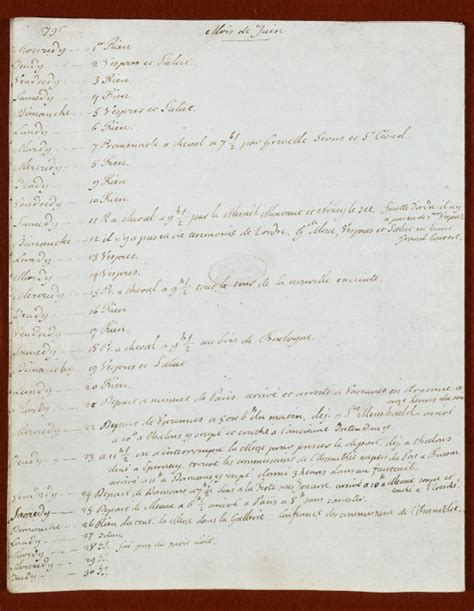 1791 Mois de Juin
Mercredy 1er Rien
Jeudy 2 Vespres et Salut
Vendredy 3 Rien
Samedy 4 Rien
Dimanche 5 Vespres et Salut
Lundy 6 Rien
Mardy 7 Promenade a cheval a 7h 1/2 par Grenelle Sevres et St Cloud
Mercredy 8 Rien
Jeudy 9 Rien
Vendredy 10 Rien
Samedy 11 a cheval a 9h 1/2 par le Mesnil
Dimanche 12 il n'y a pas eu de ceremonie de l'ordre, gde Messe, Vespres et Salut
Lundy 13 Vespres
Mardy 14 Vespres
Mercredy 15 a cheval a 9h 1/2 tour de la nouvelle enceinte
Jeudy 16 Rien
Vendredy 17 Rien
Samedy 18 a cheval a 9h 1/2 au bois de Boulogne
Dimanche 19 Vespres et Salut
Lundy 20 Rien
Mardy 21 Depart a minuit de Paris arrivé et arresté a Varennes en Argonne a
11h du soir
Mercredy 22 Depart de Varennes a 5 ou 6h du matin, dej. a Ste Menehould arrivé
a 10h a Chalons y soupé et couché a l'ancienne Intendance
Jeudy 23 a 11h 1/2 on a interrompu la Messe pour presser le depart, dej. a Chalons
diné a Epernay, trouvé les commissaires de l'Assemblée
arrivé a Dormans y soupé, dormi 3 heures dans un fauteuil
Vendredy 24 Depart de Dormans a 7h 1/2 diné a la Ferté sous Jouarre, arrivé a 10h a Meaux soupé et
couché a l'Eveché
Samedy 25 Depart de Meaux a 6h 1/2 arrivé a Paris a 8h sans s'arrester
Dimanche 26 Rien du tout, la Messe dans la Gallerie commissaires de l'Assemblée
Lundy 27 idem
Mardy 28 j'ai pris du petit lait
Mercredy 29
Jeudy 30